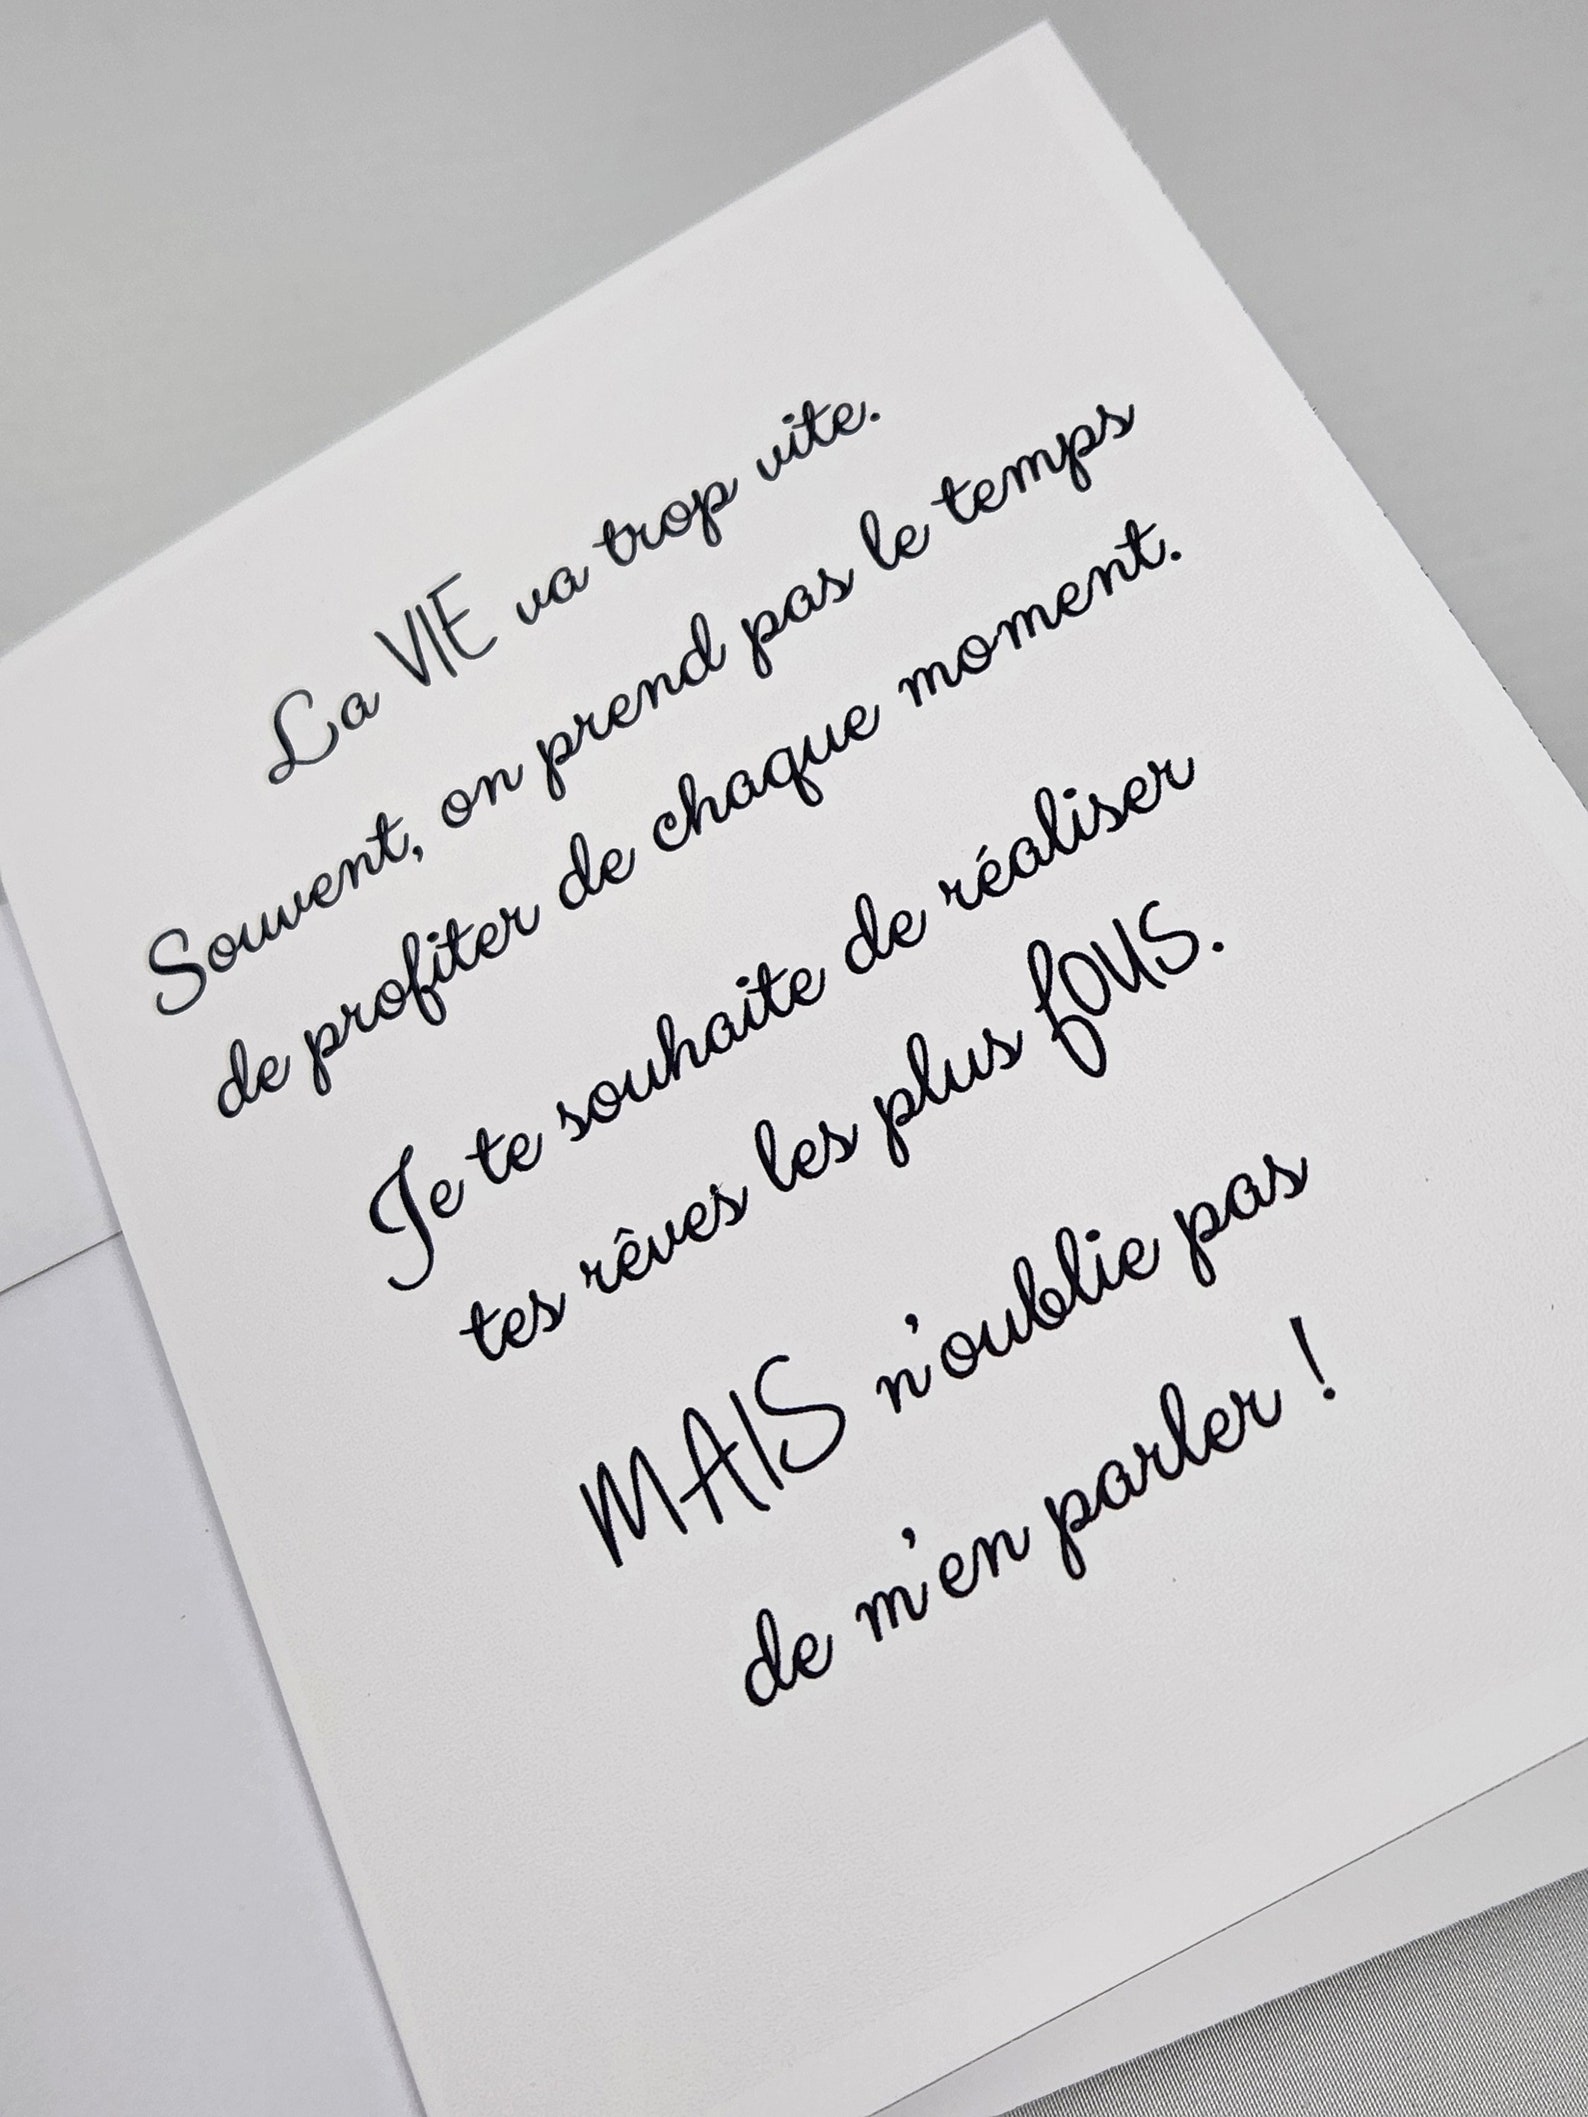 La VIE va trop vite.
Souvent, on prend pas le temps
de profiter de chaque moment.
Je te souhaite de réaliser
tes rêves les plus fous.
MAIS n'oublie pas
de m'en parler !